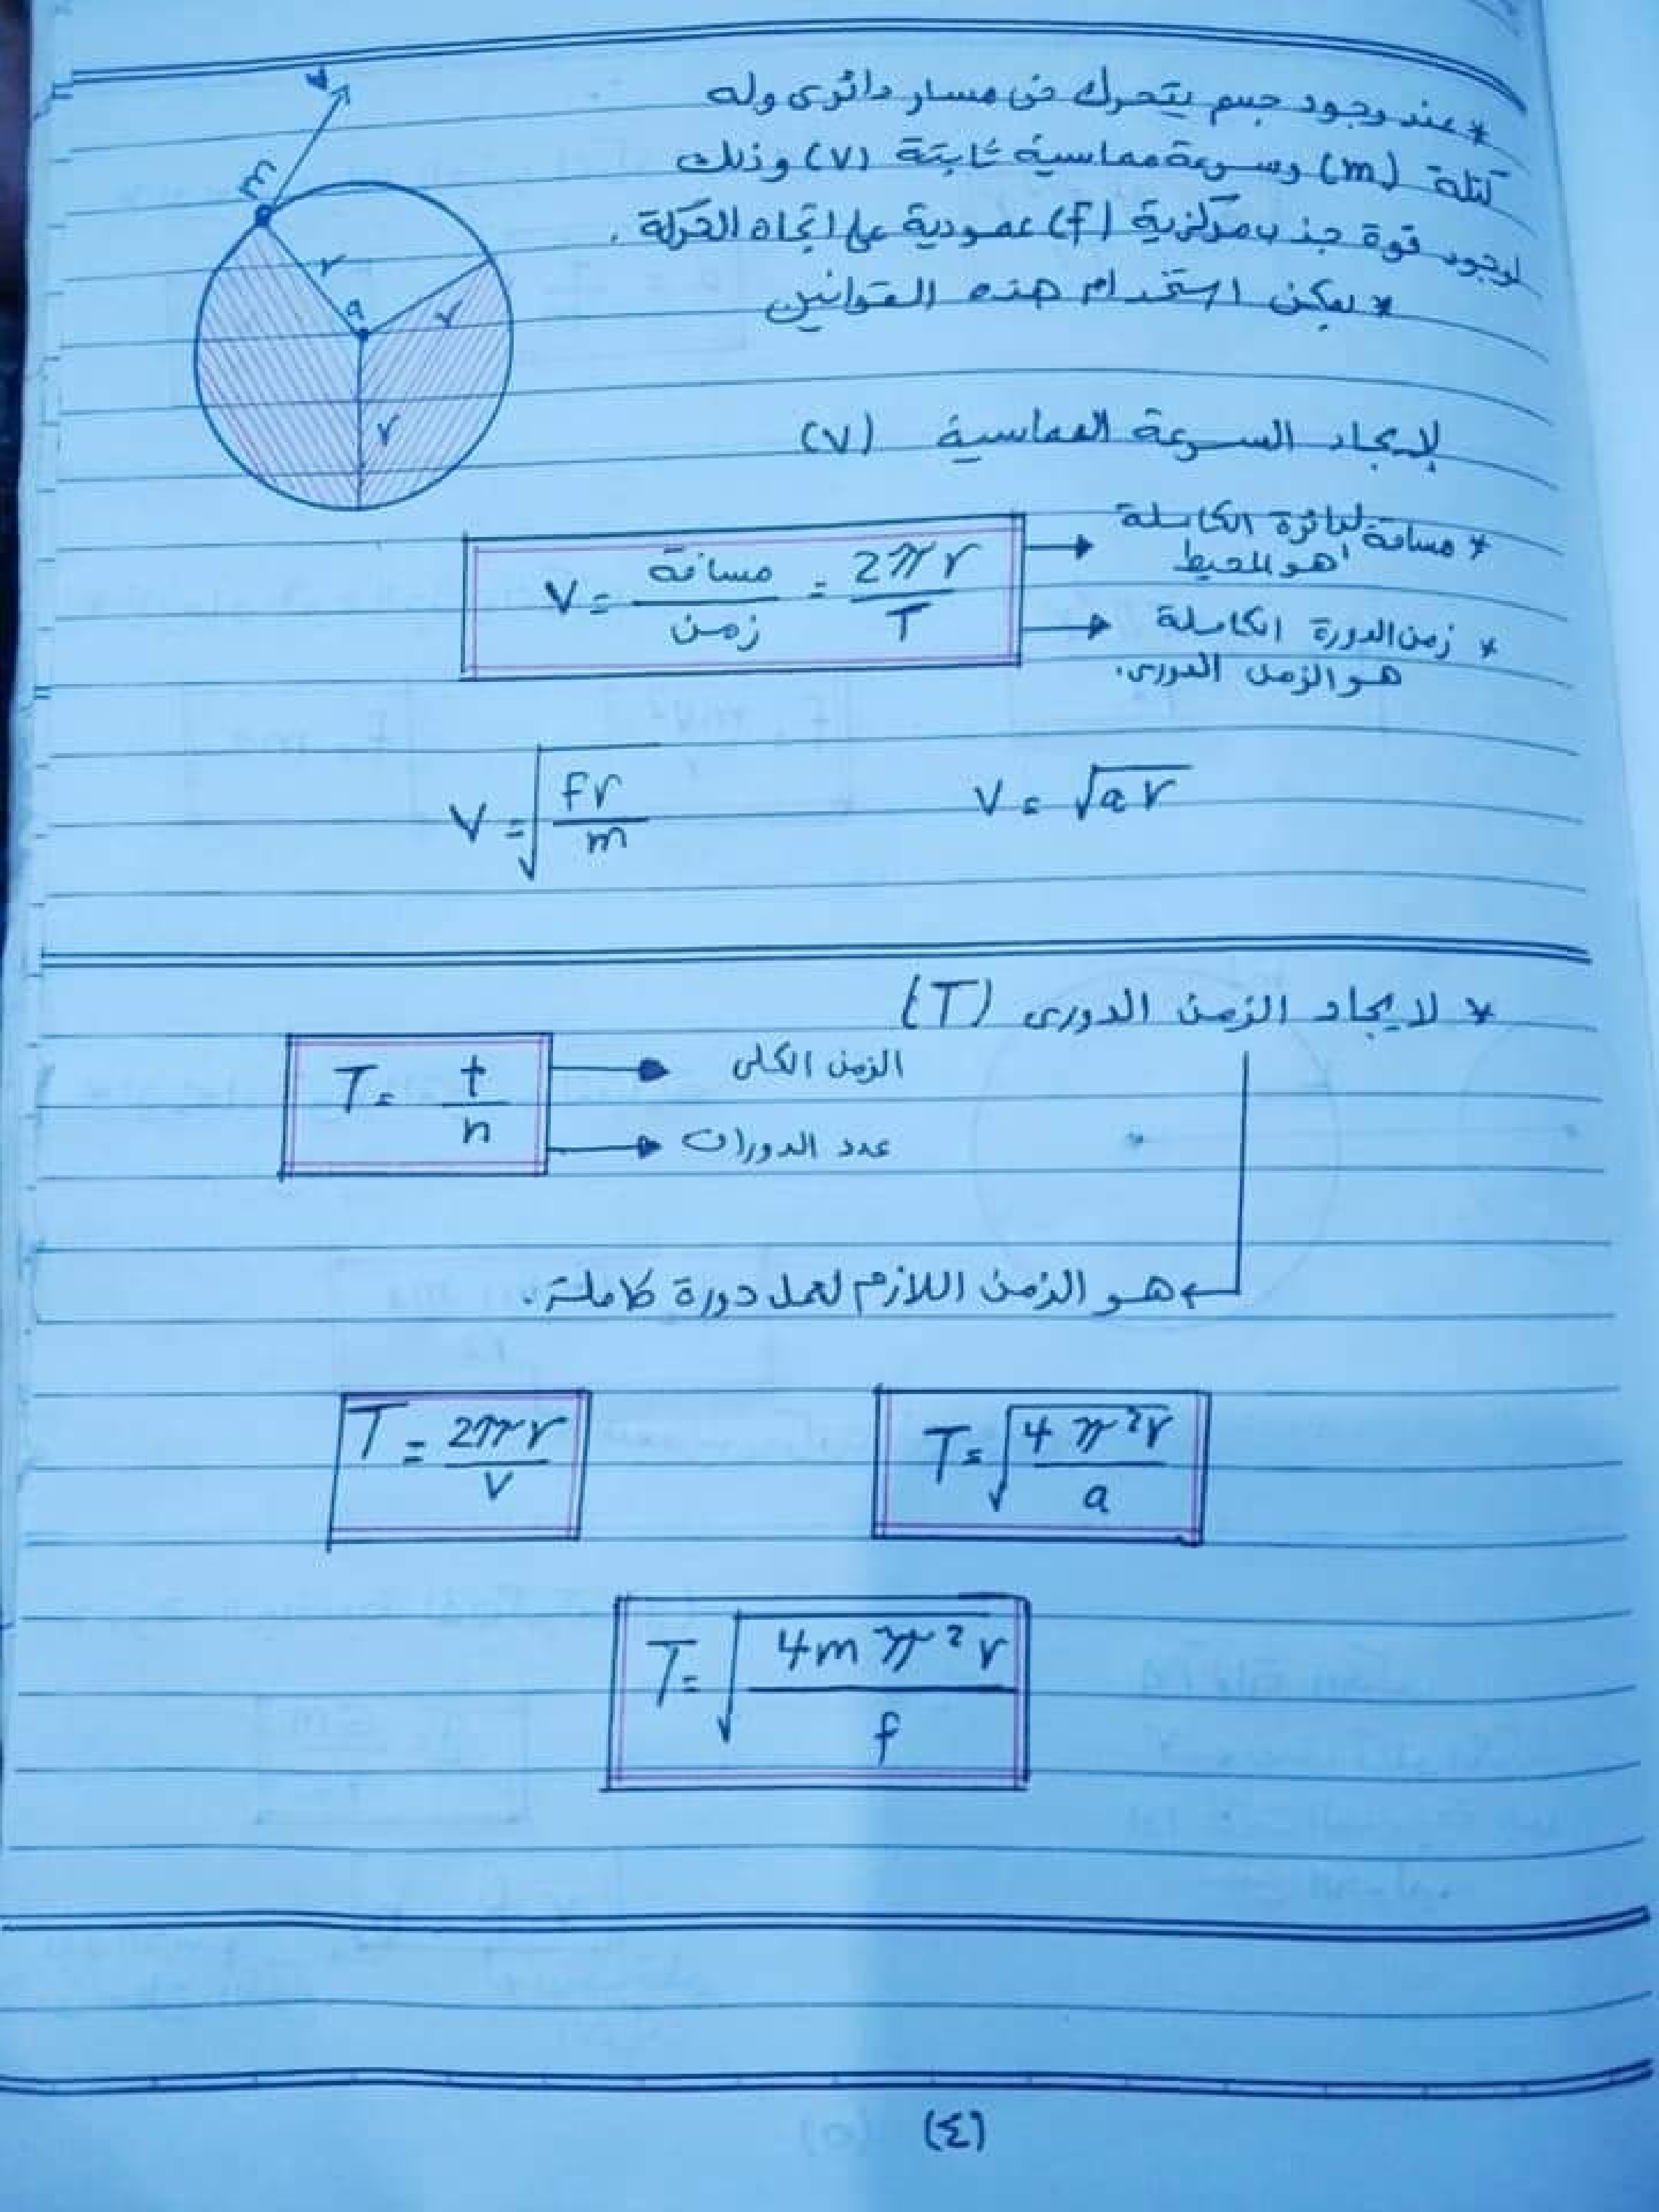 * عند وجود جسم يتحرك فى مسار دائرى وله
كتلة (m) وسرعة مماسية ثابتة (v) وذلك
لوجود قوة جذب مركزية (f) عمودية على اتجاه الحركة .
* يمكن استخدام هذه القوانين
v
m
r
a
r
r
لإيجاد السرعة المماسية (v)
V = مسافة / زمن = 2πr / T
* مسافة الدائرة الكاملة
هو المحيط
* زمن الدورة الكاملة
هو الزمن الدورى.
V = √(Fr / m)
V = √(ar)
* لايجاد الزمن الدورى (T)
T = t / n
الزمن الكلى
عدد الدورات
هو الزمن اللازم لعمل دورة كاملة .
T = 2πr / v
T = √(4π²r / a)
T = √(4mπ²r / f)
(٤)